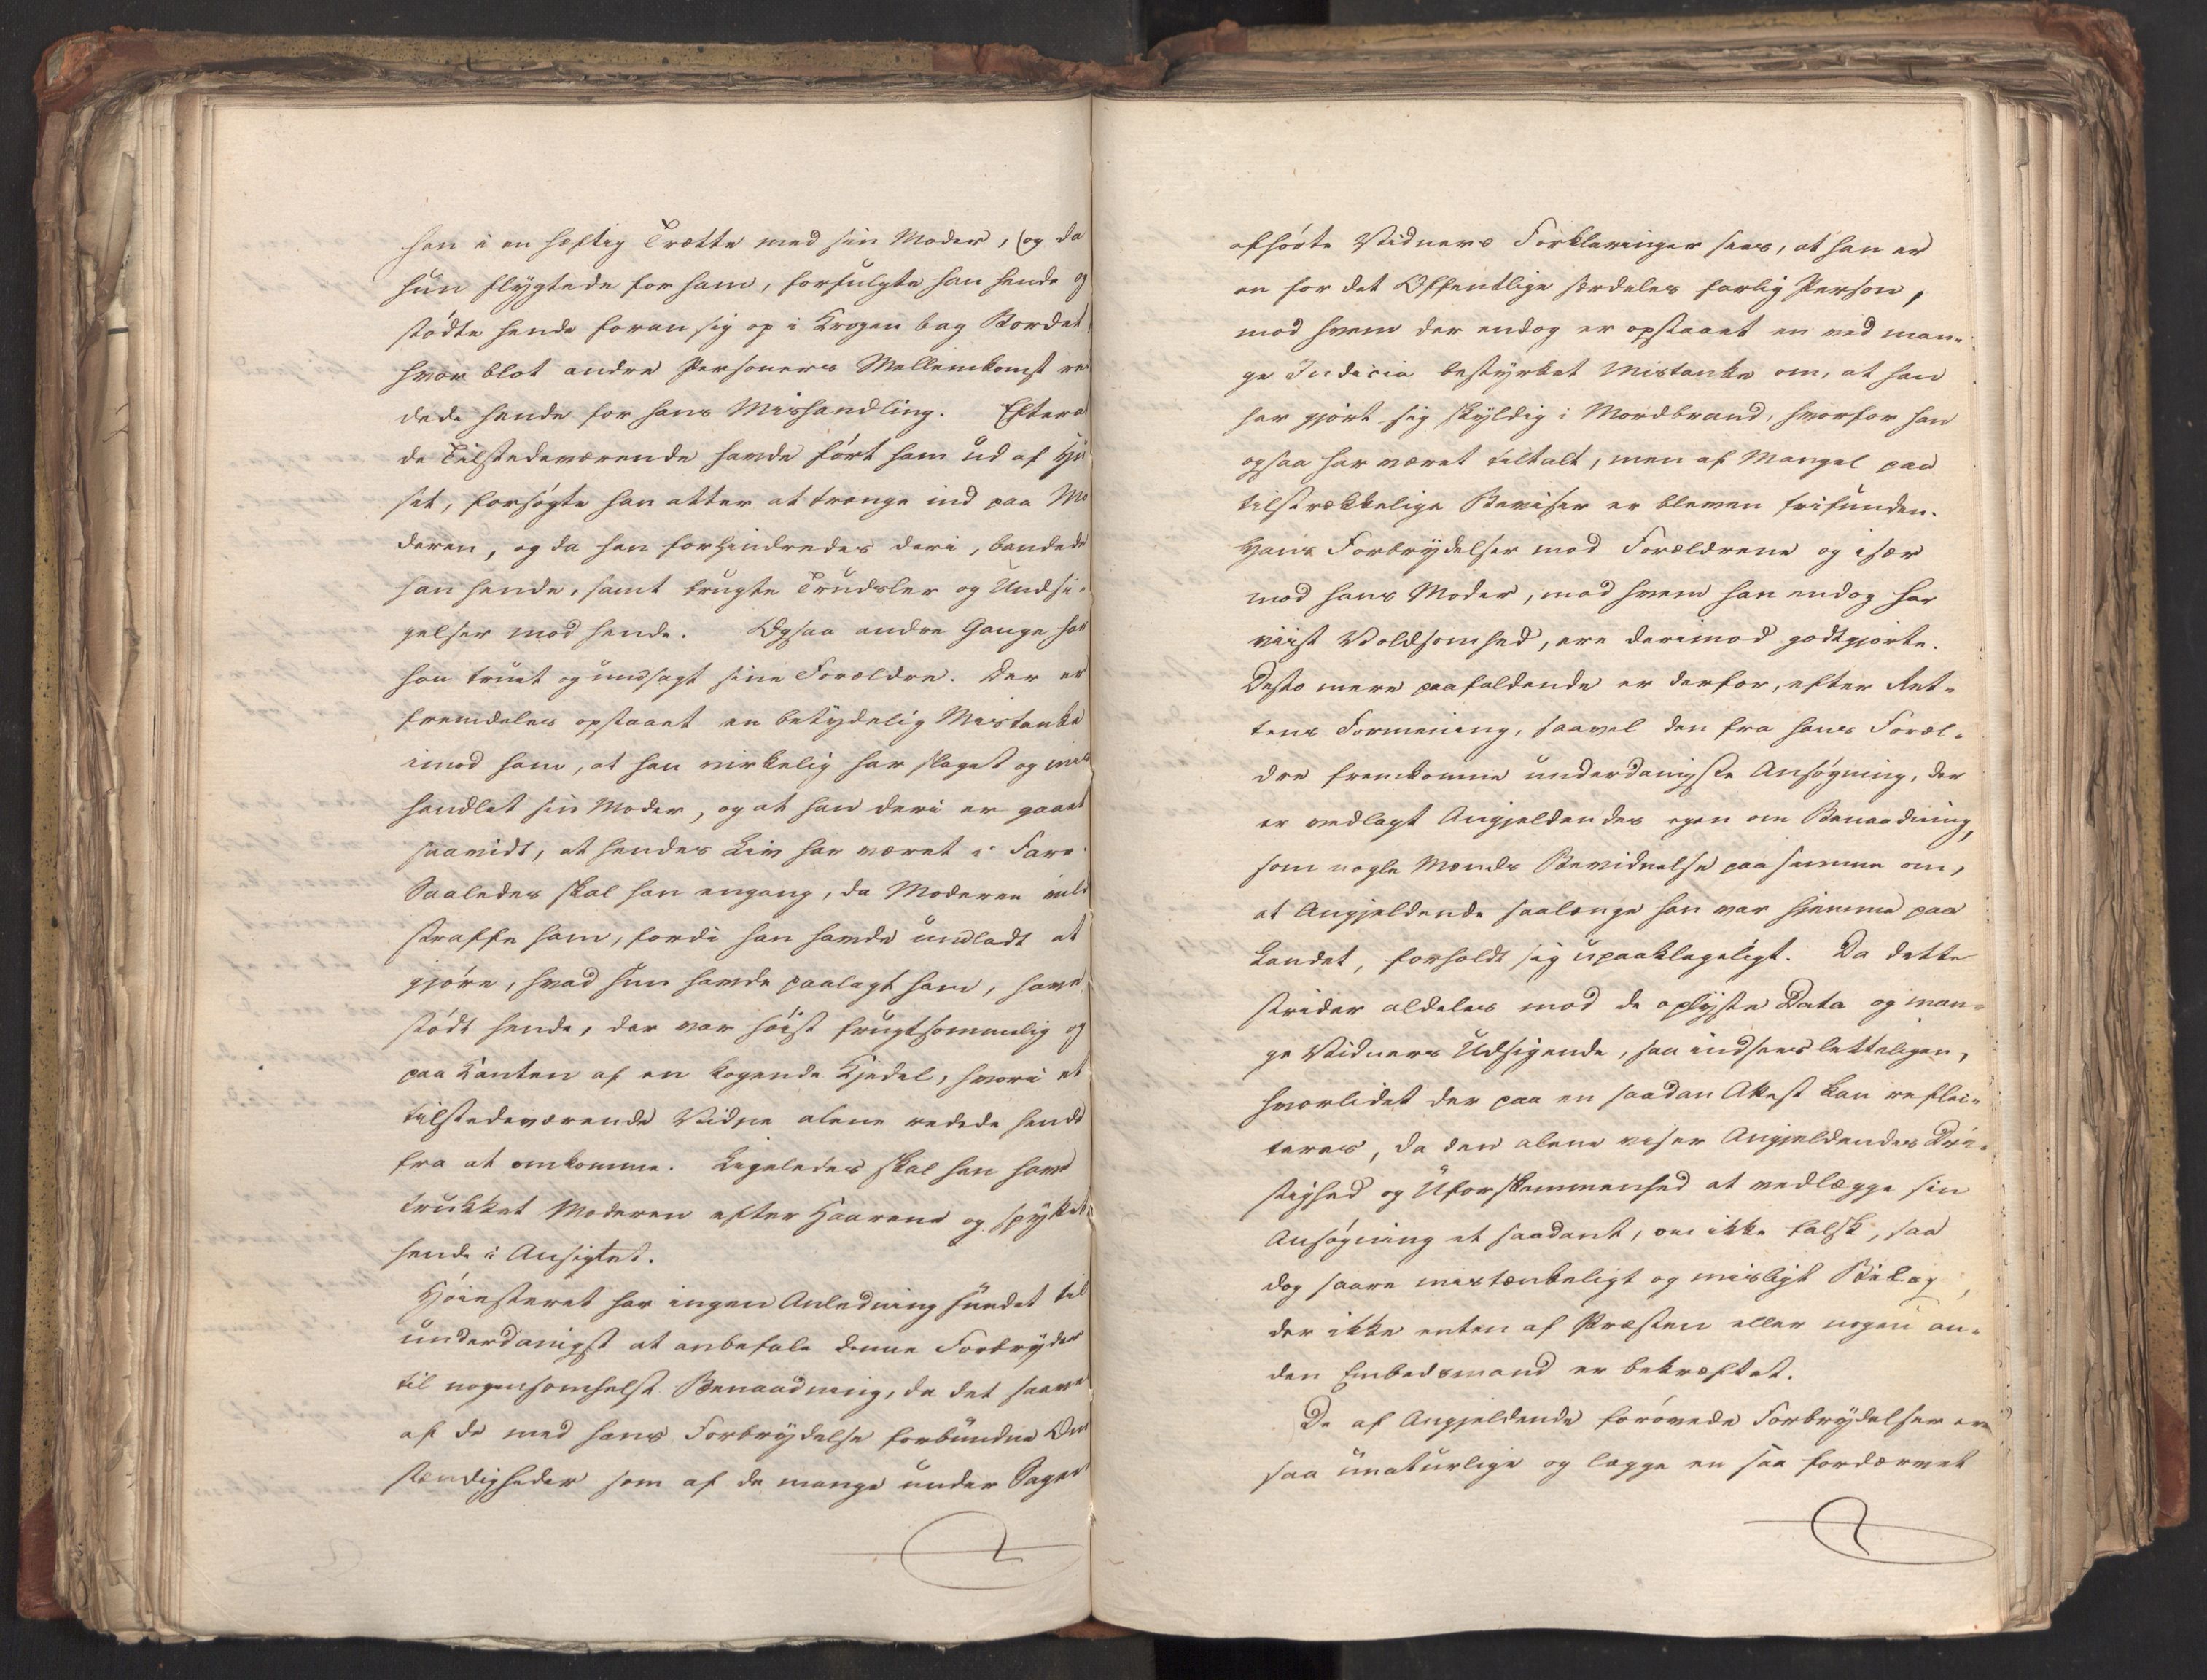 han i en heftig Trætte med sin Moder, (og da
hun flygtede for ham, forfulgte han hende og
stødte hende foran sig op i Krogen bag Bordet
hvor blot andre Personers Mellemkomst red
dede hende for hans Mishandling. Efterat
de Tilstedeværende havde ført ham ud af Hu
set, forsøgte han atter at trænge ind paa Mo
deren, og da han forhindredes deri, bandede
han hende, samt brugte Trudsler og Undsi-
gelser mod hende. Ogsaa andre Gange har
han truet og undsagt sine Forældre. Der er
fremdeles opstaaet en betydelig Mistanke
imod ham, at han virkelig har slaget og mis
handlet sin Moder, og at han deri er gaaet
saavidt, at hendes Liv har været i Fare.
Saaledes skal han engang, da Moderen vilde
straffe ham, fordi han havde undladt at
gjøre, hvad hun havde paalagt ham, have
stødt hende, der var høist frugtsommelig og
paa Kanten af en kogende Kjedel, hvori et
tilstedeværende Vidne alene reddede hende
fra at omkomme. Ligeledes skal han have
trukket Moderen efter Haarene og spyttet
hende i Ansigtet.
Høiesteret har ingen Anledning fundet til
underdanigst at anbefale denne Forbryder
til nogensomhelst Benaadning, da det saavel
af de med hans Forbrydelse forbundne Om
stændigheder som af de mange under Sagen
afhørte Vidners Forklaringer sees, at han er
en for det Offentlige særdeles farlig Person,
mod hvem der endog er opstaaet en ved man-
ge Indicia bestyrket Mistanke om, at han
har gjort sig skyldig i Mordbrand, hvorfor han
ogsaa har været tiltalt, men af Mangel paa
tilstrækkelige Beviser er bleven frifunden.
Hans Forbrydelser mod Forældrene og især
mod hans Moder, mod hvem han endog har
viist Voldsomhed, ere derimod godtgjorte.
Desto mere paafaldende er derfor, efter Ret-
tens Formening, saavel den fra hans Foræl-
dre fremkomne underdanigste Ansøgning, der
er vedlagt Angjeldendes egen om Benaadning,
som nogle Mænds Bevidnelse paa samme om,
at Angjeldende saalænge han var hjemme paa
Landet, forholdt sig upaaklageligt. Da dette
strider aldeles mod de oplyste Data og man-
ge Vidners Udsigende, saa indsees letteligen,
hvorlidet der paa en saadan Attest kan reflec-
teres, da den alene viser Angjeldendes Dri-
stighed og Uforskammenhed at vedlægge sin
Ansøgning et saadant, om ikke falsk, saa
dog saare mistænkeligt og misligt Bilag,
der ikke enten af Præsten eller nogen an-
den Embedsmand er bekræftet.
De af Angjeldende forøvede Forbrydelser ere
saa unaturlige og lægge en saa fordærvet